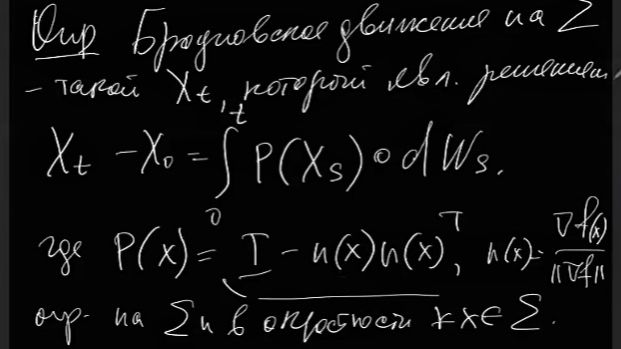 Опр Броуновское движение на Σ
- такой X_t, который явл. решением
X_t - X_0 = ∫_0^t P(X_s) ∘ dW_s.
где P(x) = I - n(x)n(x)^T, n(x) = ∇f(x) / ||∇f||
опр. на Σ и в окрестности ∀x∈Σ.